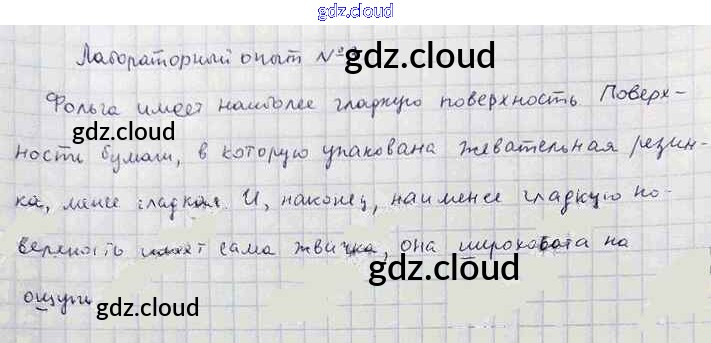 gdz.cloud
Лабораторный опыт №
gdz.cloud
Фольга имеет наиболее гладкую поверхность Поверх-
gdz.cloud
gdz.cloud
ности бумаги, в которую упакована жевательная резин-
ка, менее гладкая. И, наконец, наименее гладкую по-
gdz.cloud
верхность имеет сама жвачка, она шероховата на
gdz.cloud
ощупь
gdz.cloud